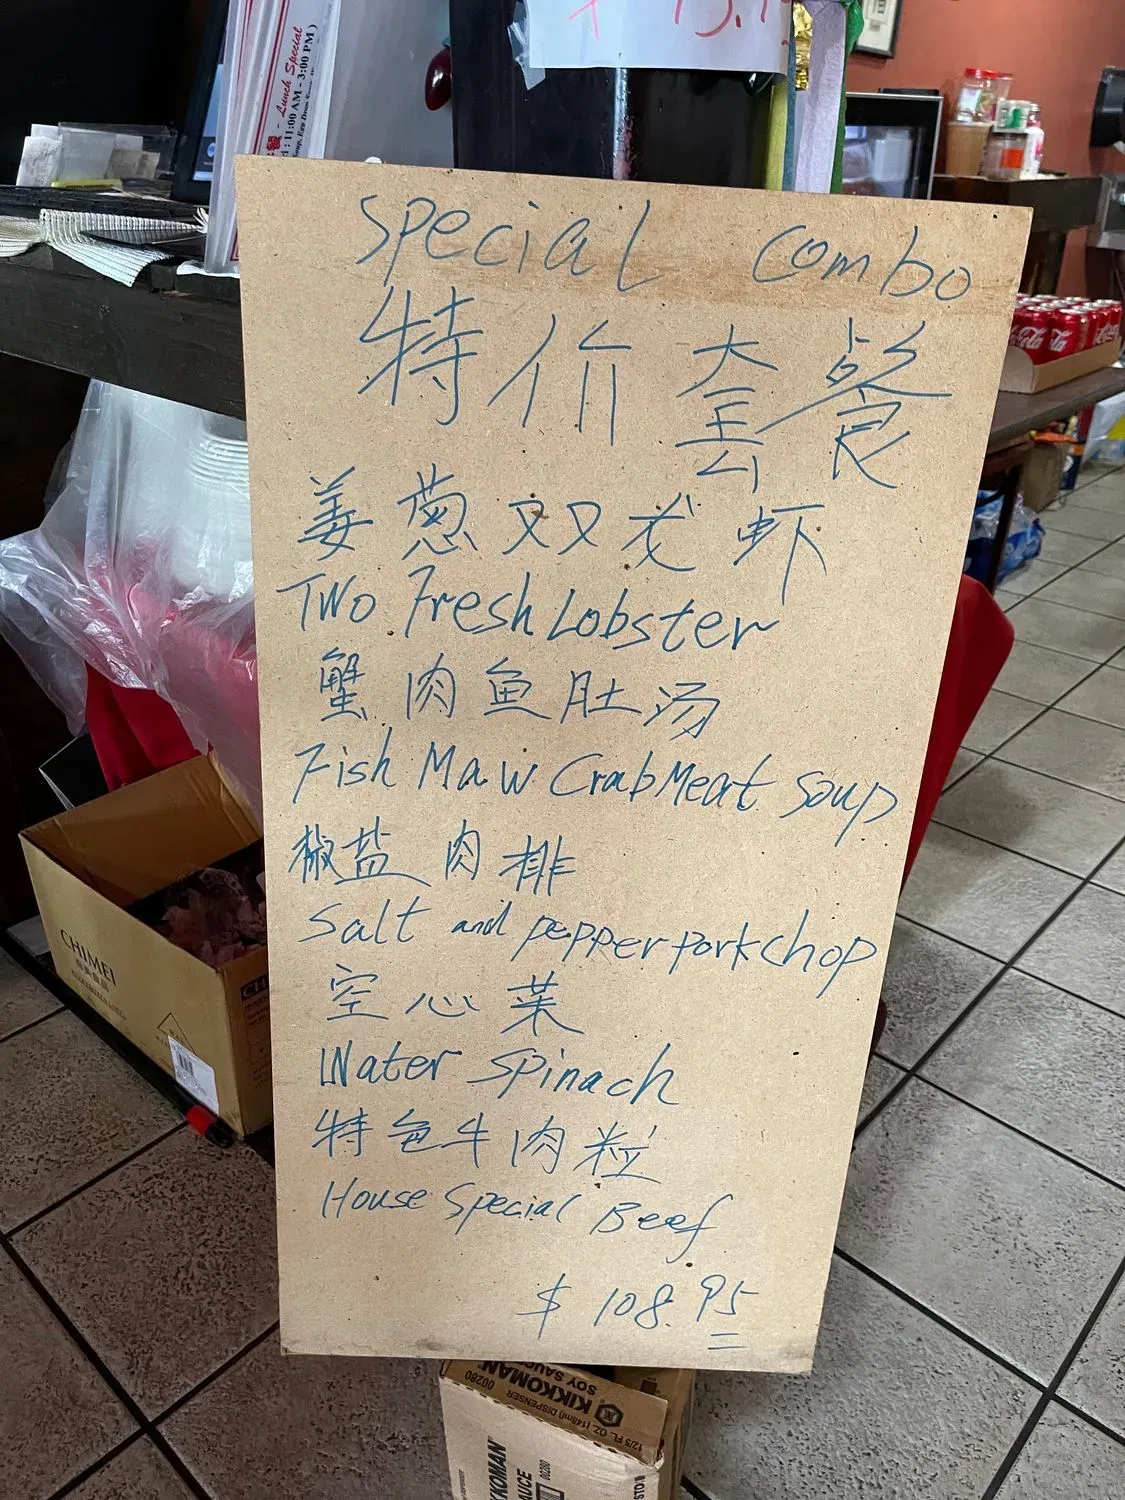 Lunch Special
11:00 AM - 3:00 PM )
Special Combo
特价套餐
姜葱双龙虾
Two Fresh Lobster
蟹肉鱼肚汤
Fish Maw Crab Meat Soup
椒盐肉排
Salt and pepper pork chop
空心菜
Water Spinach
特色牛肉粒
House Special Beef
$ 108.95
CHIMEI
KIKKOMAN
SOY SAUCE
00280
12/5 FL. OZ. (148ml) DISPENSER
KIKKOMAN
SAUCE
00280
Coca-Cola